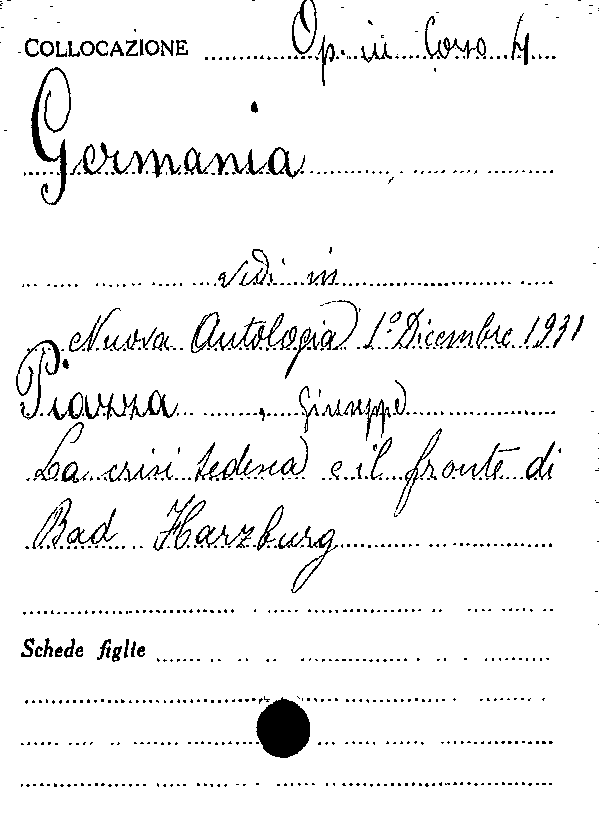 COLLOCAZIONE Op. in Corso 4
Germania
vedi in
Nuova Antologia 1° Dicembre 1931
Piazza, Giuseppe
La crisi tedesca e il fronte di
Bad Harzburg
Schede figlie